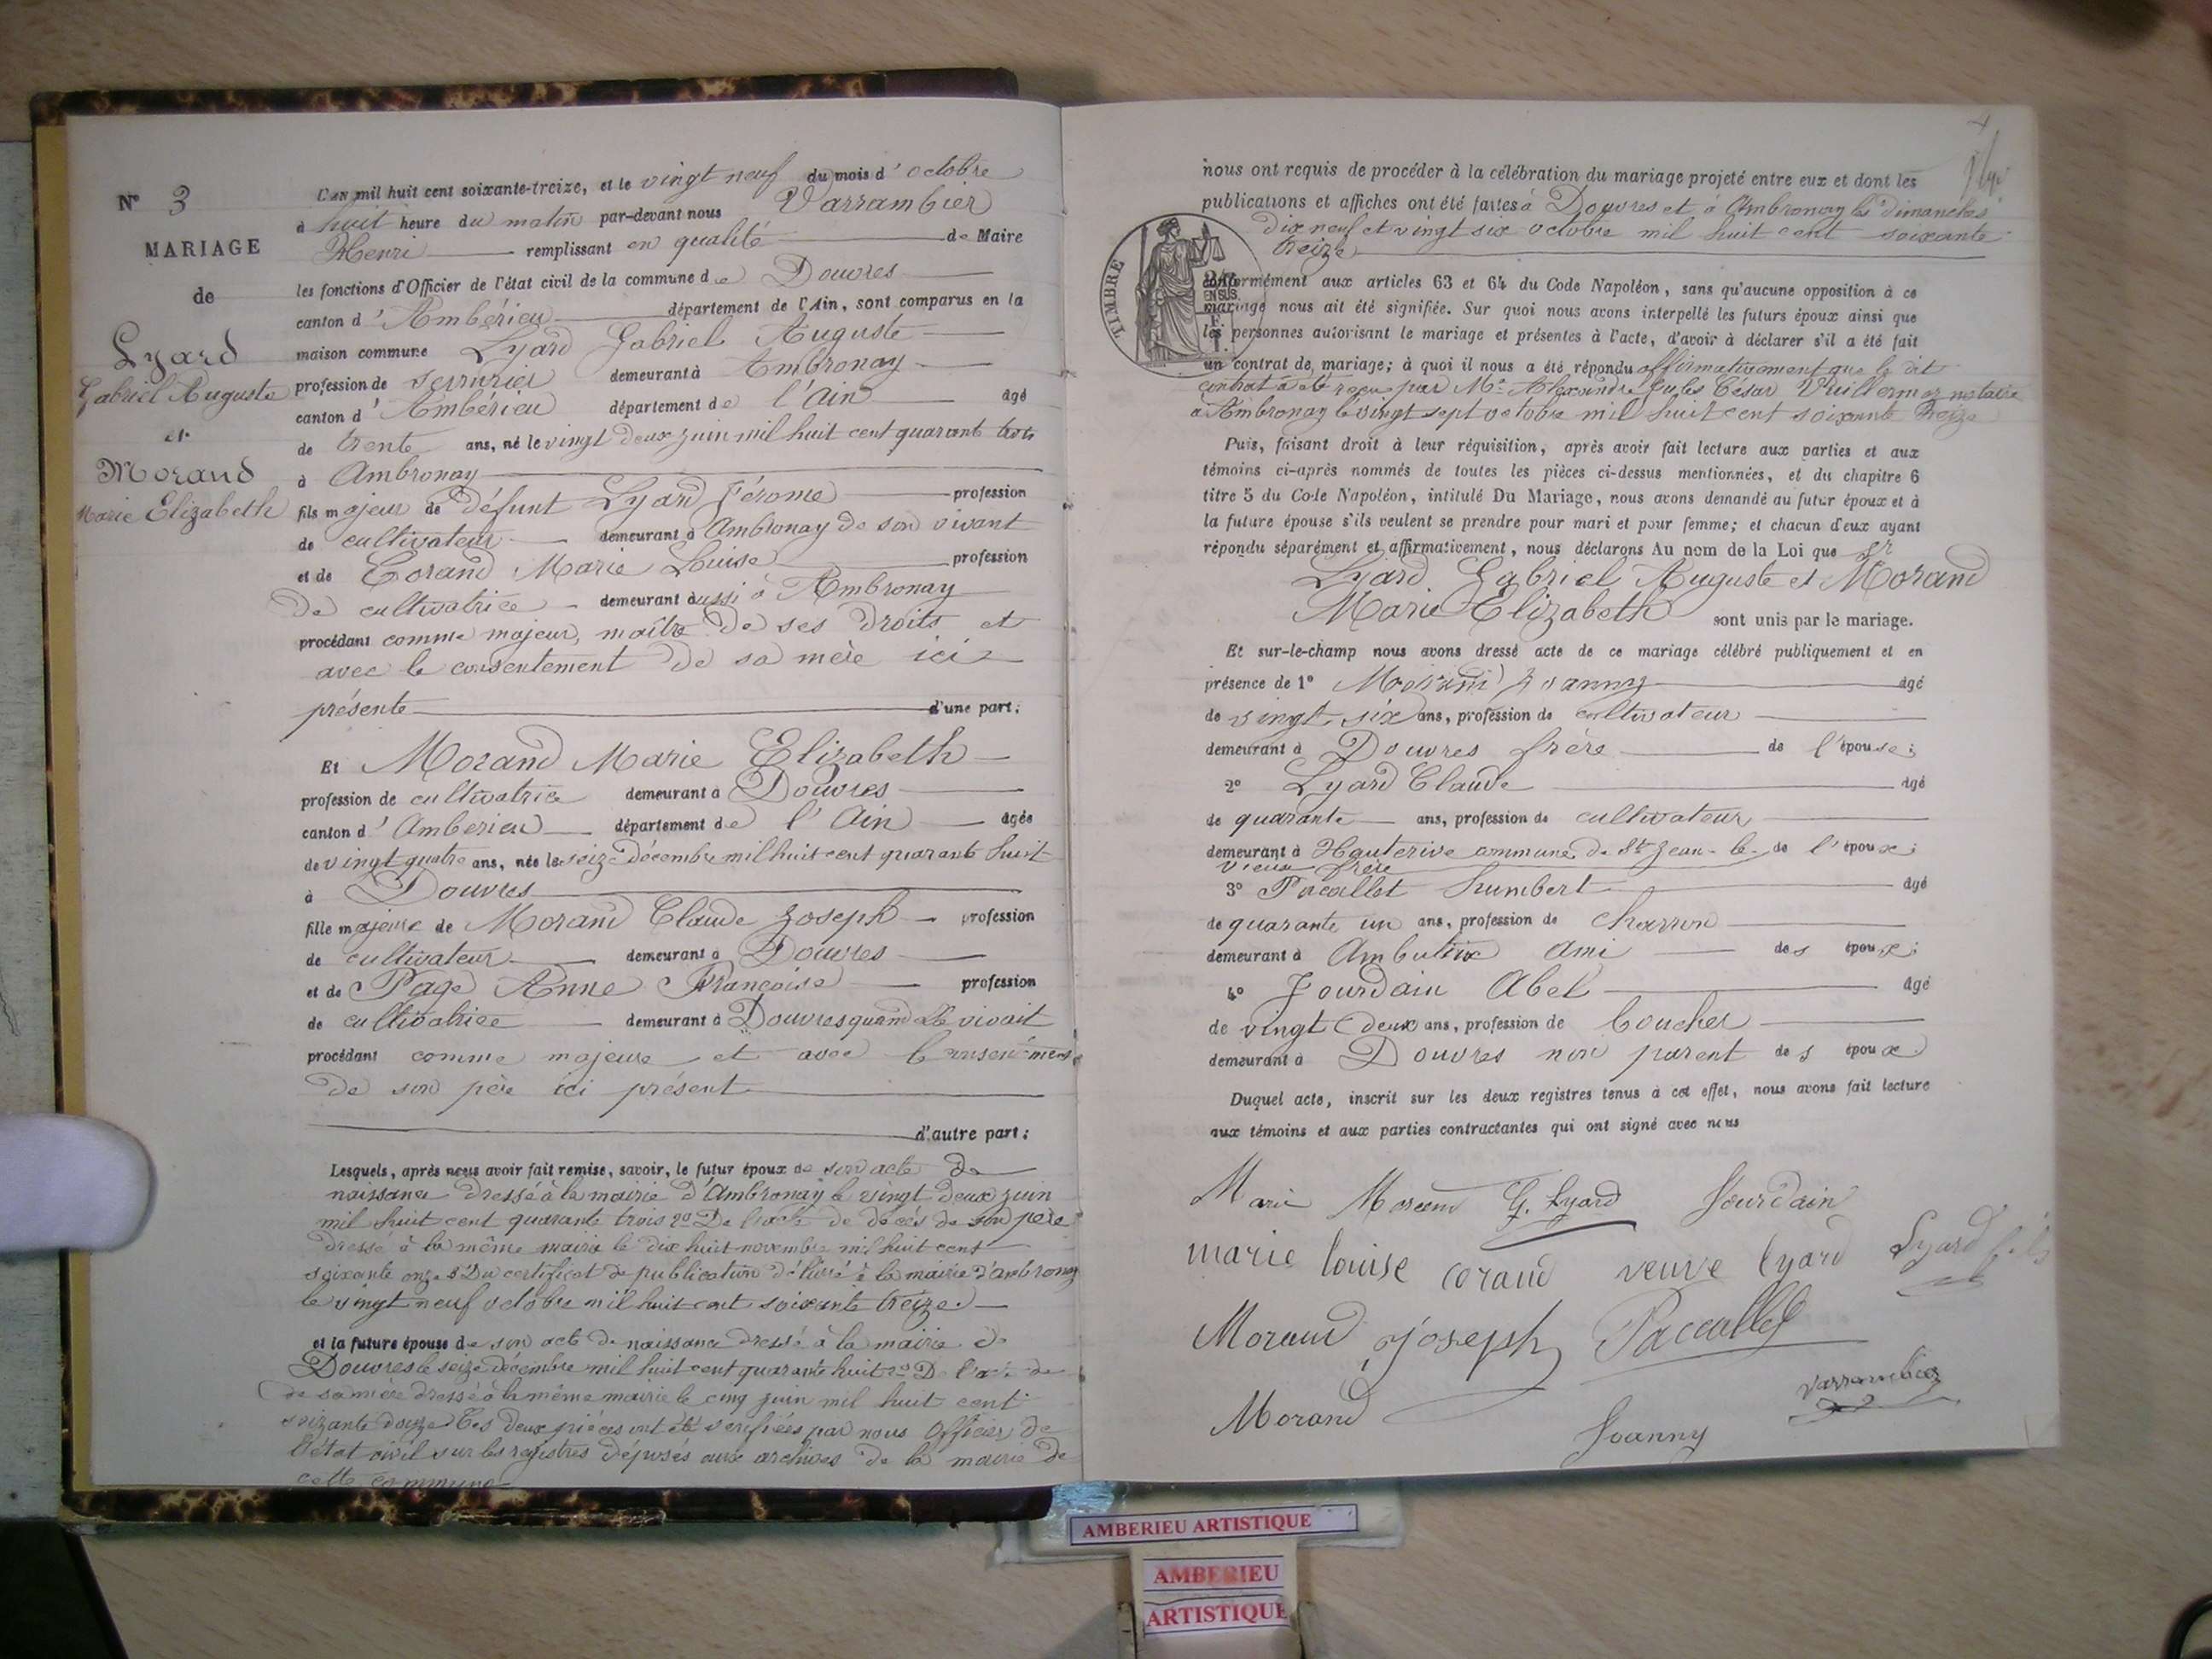 N° 3
MARIAGE
de
Lyard
Gabriel Auguste
et
Morand
Marie Elizabeth
L'AN mil huit cent soixante-treize, et le vingt neuf du mois d'octobre
à huit heure du matin par-devant nous Varrambier
Henri remplissant en qualité de Maire
les fonctions d'Officier de l'état civil de la commune de Douvres
canton d'Ambérieu département de l'Ain, sont comparus en la
maison commune Lyard Gabriel Auguste
profession de serrurier demeurant à Ambronay
canton d'Ambérieu département de l'Ain âgé
de trente ans, né le vingt deux juin mil huit cent quarante trois
à Ambronay
fils majeur de défunt Lyard Jérome profession
de cultivateur demeurant à Ambronay de son vivant
et de Corand Marie Louise profession
de cultivatrice demeurant aussi à Ambronay
procédant comme majeur, maître de ses droits et
avec le consentement de sa mère ici
présente d'une part;
Et Morand Marie Elizabeth
profession de cultivatrice demeurant à Douvres
canton d'Amberieu département de l'Ain âgée
de vingt quatre ans, née le seize décembre mil huit cent quarante huit
à Douvres
fille majeure de Morand Claude Joseph profession
de cultivateur demeurant à Douvres
et de Page Anne Françoise profession
de cultivatrice demeurant à Douvres quand elle vivait
procédant comme majeure et avec le consentement
de son père ici présent
d'autre part;
Lesquels, après nous avoir fait remise, savoir, le futur époux de son acte de
naissance dressé à la mairie d'Ambronay le vingt deux juin
mil huit cent quarante trois 2° De l'acte de décès de son père
dressé à la même mairie le dix huit novembre mil huit cent
soixante onze 3° Du certificat de publication délivré à la mairie d'ambronay
le vingt neuf octobre mil huit cent soixante treize.
et la future épouse de son acte de naissance dressé à la mairie de
Douvres le seize décembre mil huit cent quarante huit 2° De l'acte de
de sa mère dressé à la même mairie le cinq juin mil huit cent
soixante douze Ces deux pièces ont été verifiées par nous Officier de
l'état civil sur les registres déposés aux archives de la mairie de
cette commune
4
nous ont requis de procéder à la célébration du mariage projeté entre eux et dont les
publications et affiches ont été faites à Douvres et à Ambronay les dimanches
dix neuf et vingt six octobre mil huit cent soixante
treize
TIMBRE
conformément aux articles 63 et 64 du Code Napoléon, sans qu'aucune opposition à ce
mariage nous ait été signifiée. Sur quoi nous avons interpellé les futurs époux ainsi que
les personnes autorisant le mariage et présentes à l'acte, d'avoir à déclarer s'il a été fait
un contrat de mariage; à quoi il nous a été répondu affirmativement que le dit
contrat a été reçu par Me Alexandre Jules César Vuillermoz notaire
à Ambronay le vingt sept octobre mil huit cent soixante treize
Puis, faisant droit à leur réquisition, après avoir fait lecture aux parties et aux
témoins ci-après nommés de toutes les pièces ci-dessus mentionnées, et du chapitre 6
titre 5 du Code Napoléon, intitulé Du Mariage, nous avons demandé au futur époux et à
la future épouse s'ils veulent se prendre pour mari et pour femme; et chacun d'eux ayant
répondu séparément et affirmativement, nous déclarons Au nom de la Loi que Sr
Lyard Gabriel Auguste et Morand
Marie Elizabeth sont unis par le mariage.
Et sur-le-champ nous avons dressé acte de ce mariage célébré publiquement et en
présence de 1° Morand Joanny âgé
de vingt six ans, profession de cultivateur
demeurant à Douvres frère de l'épouse;
2° Lyard Claude âgé
de quarante ans, profession de cultivateur
demeurant à Hauterive commune de St Jean-le- de l'époux;
vieux frère
3° Pacallet humbert âgé
de quarante un ans, profession de charron
demeurant à Ambutrix ami des époux;
4° Jourdain Abel âgé
de vingt deux ans, profession de boucher
demeurant à Douvres non parent des époux
Duquel acte, inscrit sur les deux registres tenus à cet effet, nous avons fait lecture
aux témoins et aux parties contractantes qui ont signé avec nous
Marie Morand G. Lyard Jourdain
marie louise corand veuve lyard Lyard fils
Morand Joseph Paccallet
Morand Joanny Varrambier
AMBERIEU ARTISTIQUE
AMBERIEU
ARTISTIQUE